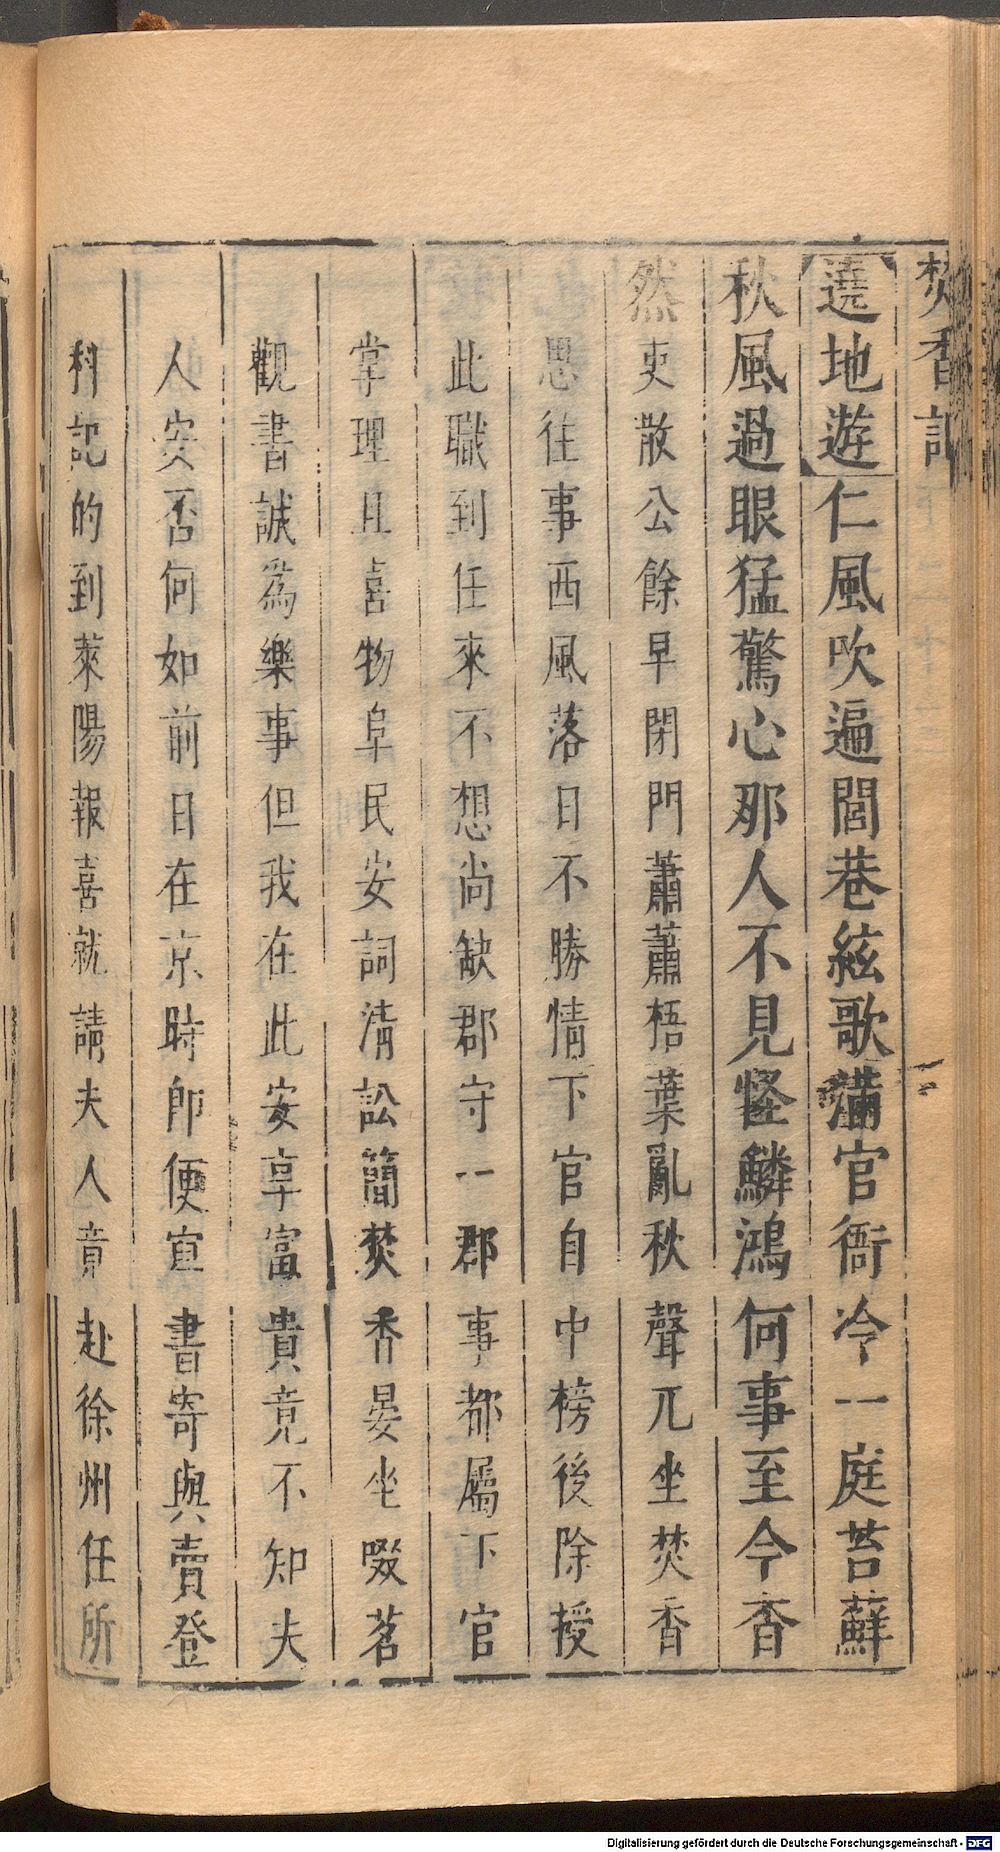 焚香記
遶地遊仁風吹遍閭巷絃歌滿官衙冷一庭苔蘚
秋風過眼猛驚心那人不見怪鱗鴻何事至今杳
然吏散公餘早閉門蕭蕭梧葉亂秋聲兀坐焚香
思往事西風落日不勝情下官自中榜後除授
此職到任來不想尚缺郡守一郡事都屬下官
掌理且喜物阜民安詞清訟簡焚香晏坐啜茗
觀書誠爲樂事但我在此安享富貴竟不知夫
人安否何如前日在京時卽便宣書寄與賣登
科記的到萊陽報喜就請夫人竟赴徐州任所
Digitalisierung gefördert durch die Deutsche Forschungsgemeinschaft - DFG